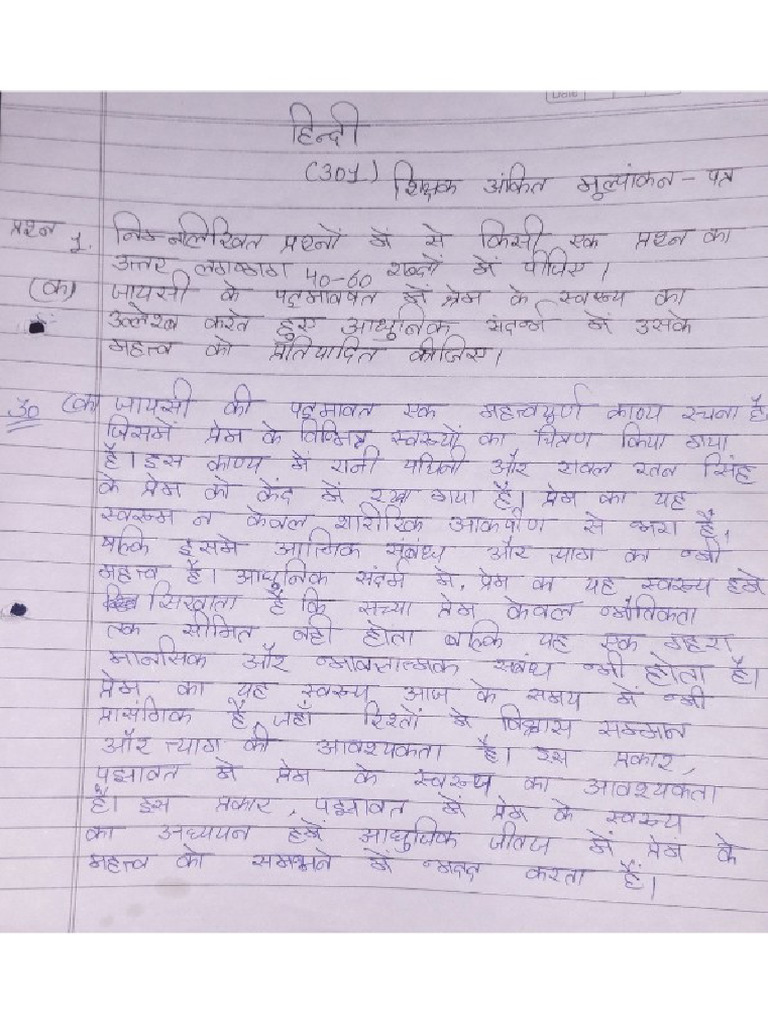 हिन्दी
(301) शिक्षक अंकित मूल्यांकन - पत्र
प्रश्न 1. निम्नलिखित प्रश्नों में से किसी एक प्रश्न का
उत्तर लगभग 40-60 शब्दों में दीजिए।
(क) जायसी के पद्मावत में प्रेम के स्वरूप का
उल्लेख करते हुए आधुनिक संदर्भ में उसके
महत्त्व को प्रतिपादित कीजिए।
उ० (क) जायसी की पद्मावत एक महत्त्वपूर्ण काव्य रचना है,
जिसमें प्रेम के विभिन्न स्वरूपों का चित्रण किया गया
है। इस काव्य में रानी पद्मिनी और रावल रतन सिंह
के प्रेम को केंद्र में रखा गया है। प्रेम का यह
स्वरूप न केवल शारीरिक आकर्षण से भरा है,
बल्कि इसमे आत्मिक संबंध और त्याग का भी
महत्त्व है। आधुनिक संदर्भ मे, प्रेम का यह स्वरूप हमे
सिखाता है कि सच्चा प्रेम केवल भौतिकता
तक सीमित नही होता बल्कि यह एक गहरा
मानसिक और भावनात्मक संबंध भी होता है।
प्रेम का यह स्वरूप आज के समय में भी
प्रासंगिक है, जहाँ रिश्तों मे विश्वास सम्मान
और त्याग की आवश्यकता है। इस प्रकार,
पद्मावत मे प्रेम के स्वरूप का आवश्यकता
है। इस प्रकार, पद्मावत में प्रेम के स्वरूप
का अध्ययन हमें आधुनिक जीवन में प्रेम के
महत्त्व को समझने में मदद करता हैं।